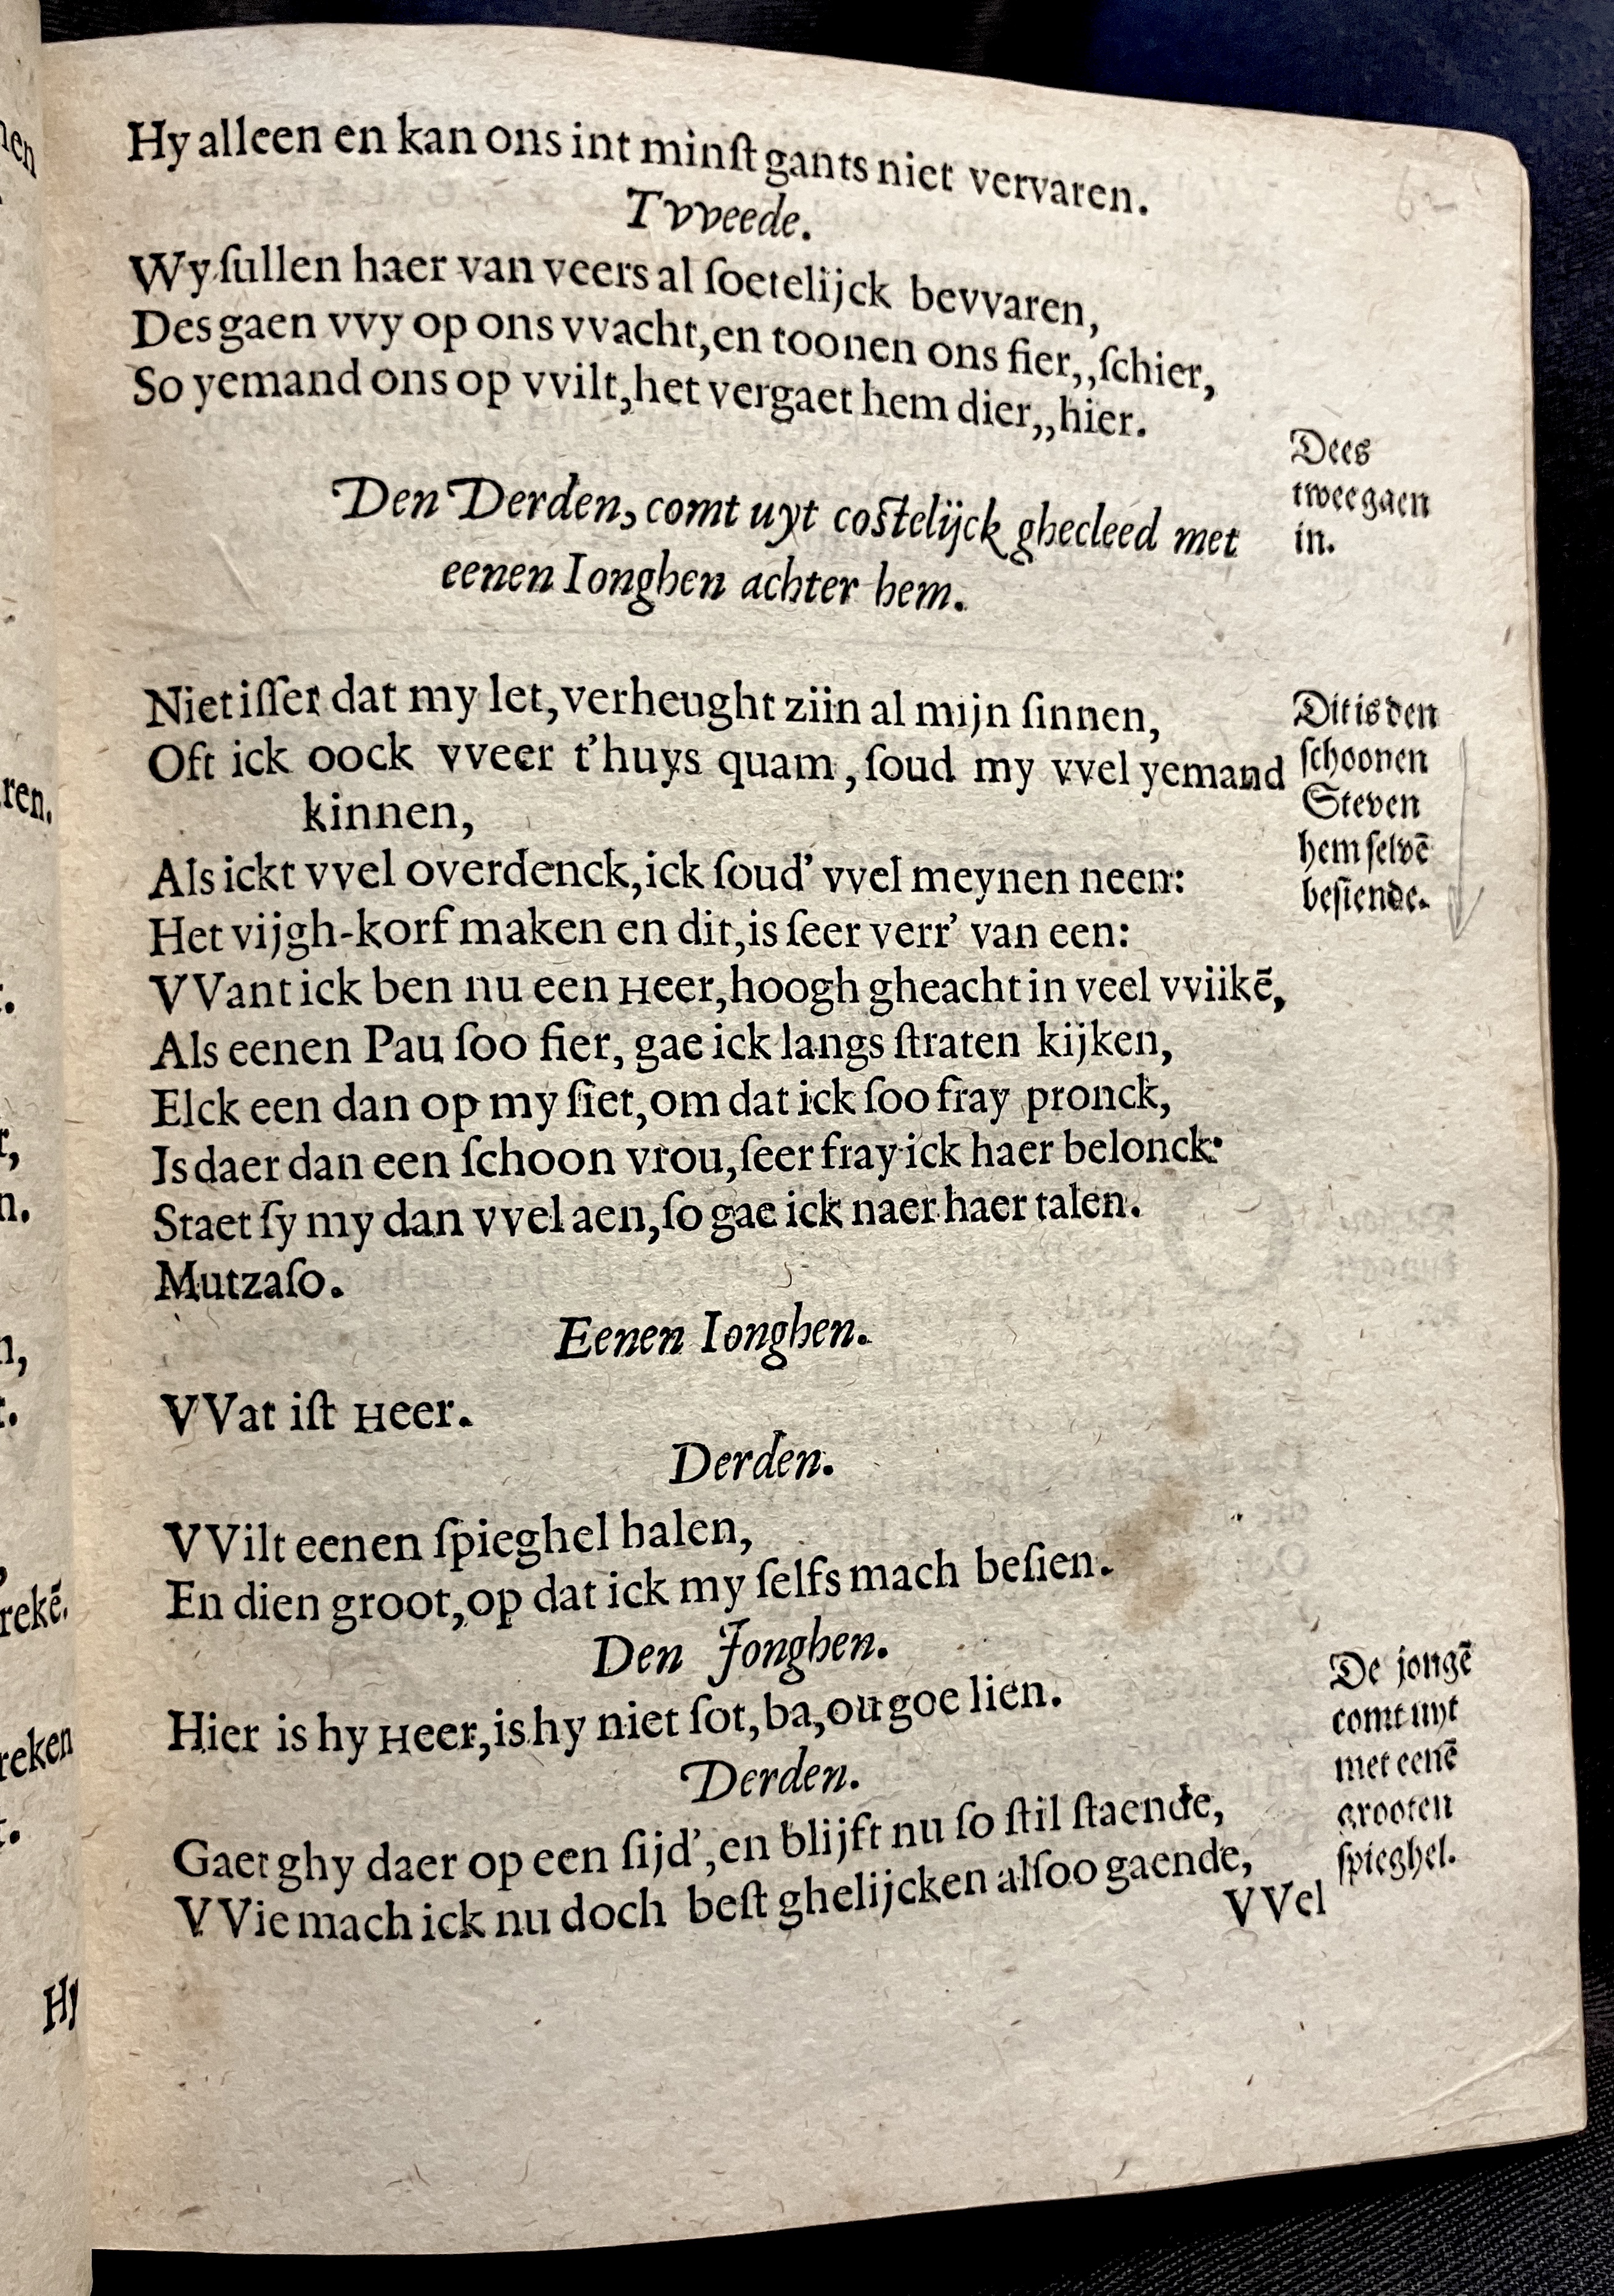 Hy alleen en kan ons int minſt gants niet vervaren.
Tvveede.
Wy ſullen haer van veers al ſoetelijck bevvaren,
Des gaen vvy op ons vvacht, en toonen ons fier,, ſchier,
So yemand ons op vvilt, het vergaet hem dier,, hier.
Dees
tweegaen
in.
Den Derden, comt uyt coſtelijck ghecleed met
eenen Ionghen achter hem.
Niet iſſer dat my let, verheught ziin al mijn ſinnen,
Oft ick oock vveer t'huys quam, ſoud my vvel yemand
kinnen,
Als ickt vvel overdenck, ick ſoud' vvel meynen neen:
Het vijgh-korf maken en dit, is ſeer verr' van een:
VVant ick ben nu een Heer, hoogh gheacht in veel vviikē,
Als eenen Pau ſoo fier, gae ick langs ſtraten kijken,
Elck een dan op my ſiet, om dat ick ſoo fray pronck,
Is daer dan een ſchoon vrou, ſeer fray ick haer belonck:
Staet ſy my dan vvel aen, ſo gae ick naer haer talen.
Mutzaſo.
Dit is den
ſchoonen
Steven
hem ſelvē
beſiende.
Eenen Ionghen.
VVat iſt Heer.
Derden.
VVilt eenen ſpieghel halen,
En dien groot, op dat ick my ſelfs mach beſien.
Den Jonghen.
Hier is hy Heer, is hy niet ſot, ba, ou goe lien.
Derden.
Gaet ghy daer op een ſijd', en blijft nu ſo ſtil ſtaende,
VVie mach ick nu doch beſt ghelijcken alſoo gaende,
De jongē
comt uyt
met eenē
grooten
ſpieghel.
VVel
ren.
rekē.
reken